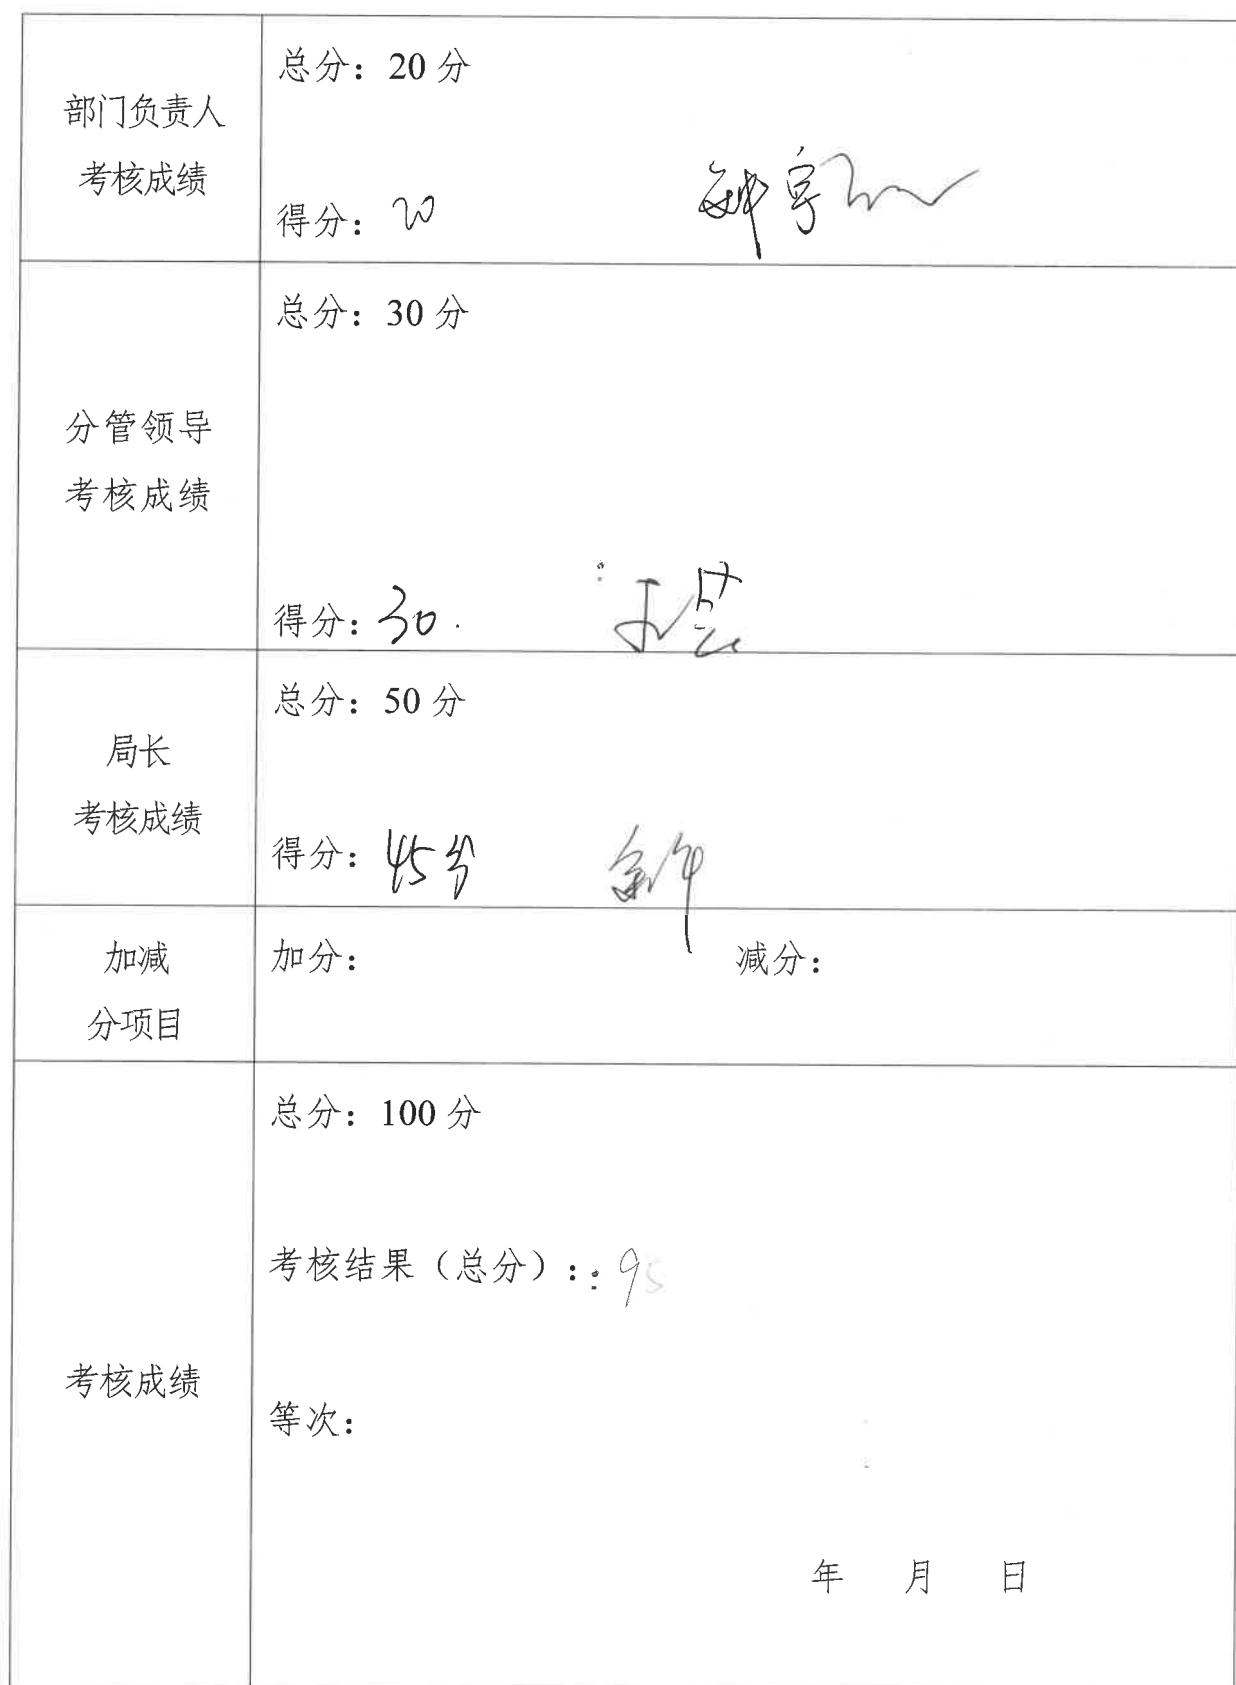 部门负责人
考核成绩
总分：20 分
得分：20
分管领导
考核成绩
总分：30 分
得分：30.
局长
考核成绩
总分：50 分
得分：45分
加减
分项目
加分：
减分：
考核成绩
总分：100 分
考核结果（总分）：：95
等次：
年 月 日